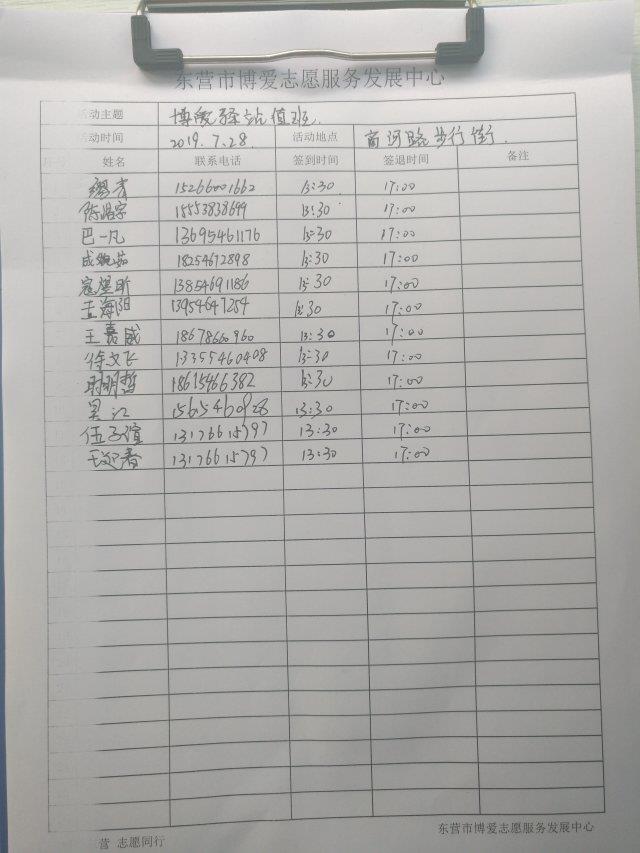 东营市博爱志愿服务发展中心
活动主题 博爱驿站值班
活动时间 2019.7.28. 活动地点 商河路步行街
姓名 联系电话 签到时间 签退时间 备注
15266001662 13:30 17:00
陈浩宇 15553838699 13:30 17:00
巴一凡 13695461176 13:30 17:00
18254672898 13:30 17:00
寇堃昕 13854691186 13:30 17:00
孟海阳 13954647254 13:30 17:00
王嘉威 18678660960 13:30 17:00
徐文飞 13355460408 13:30 17:00
18615466382 13:30 17:00
吴江 15615460928 13:30 17:00
伍子谊 13176615797 13:30 17:00
13176615797 13:30 17:00
营 志愿同行
东营市博爱志愿服务发展中心